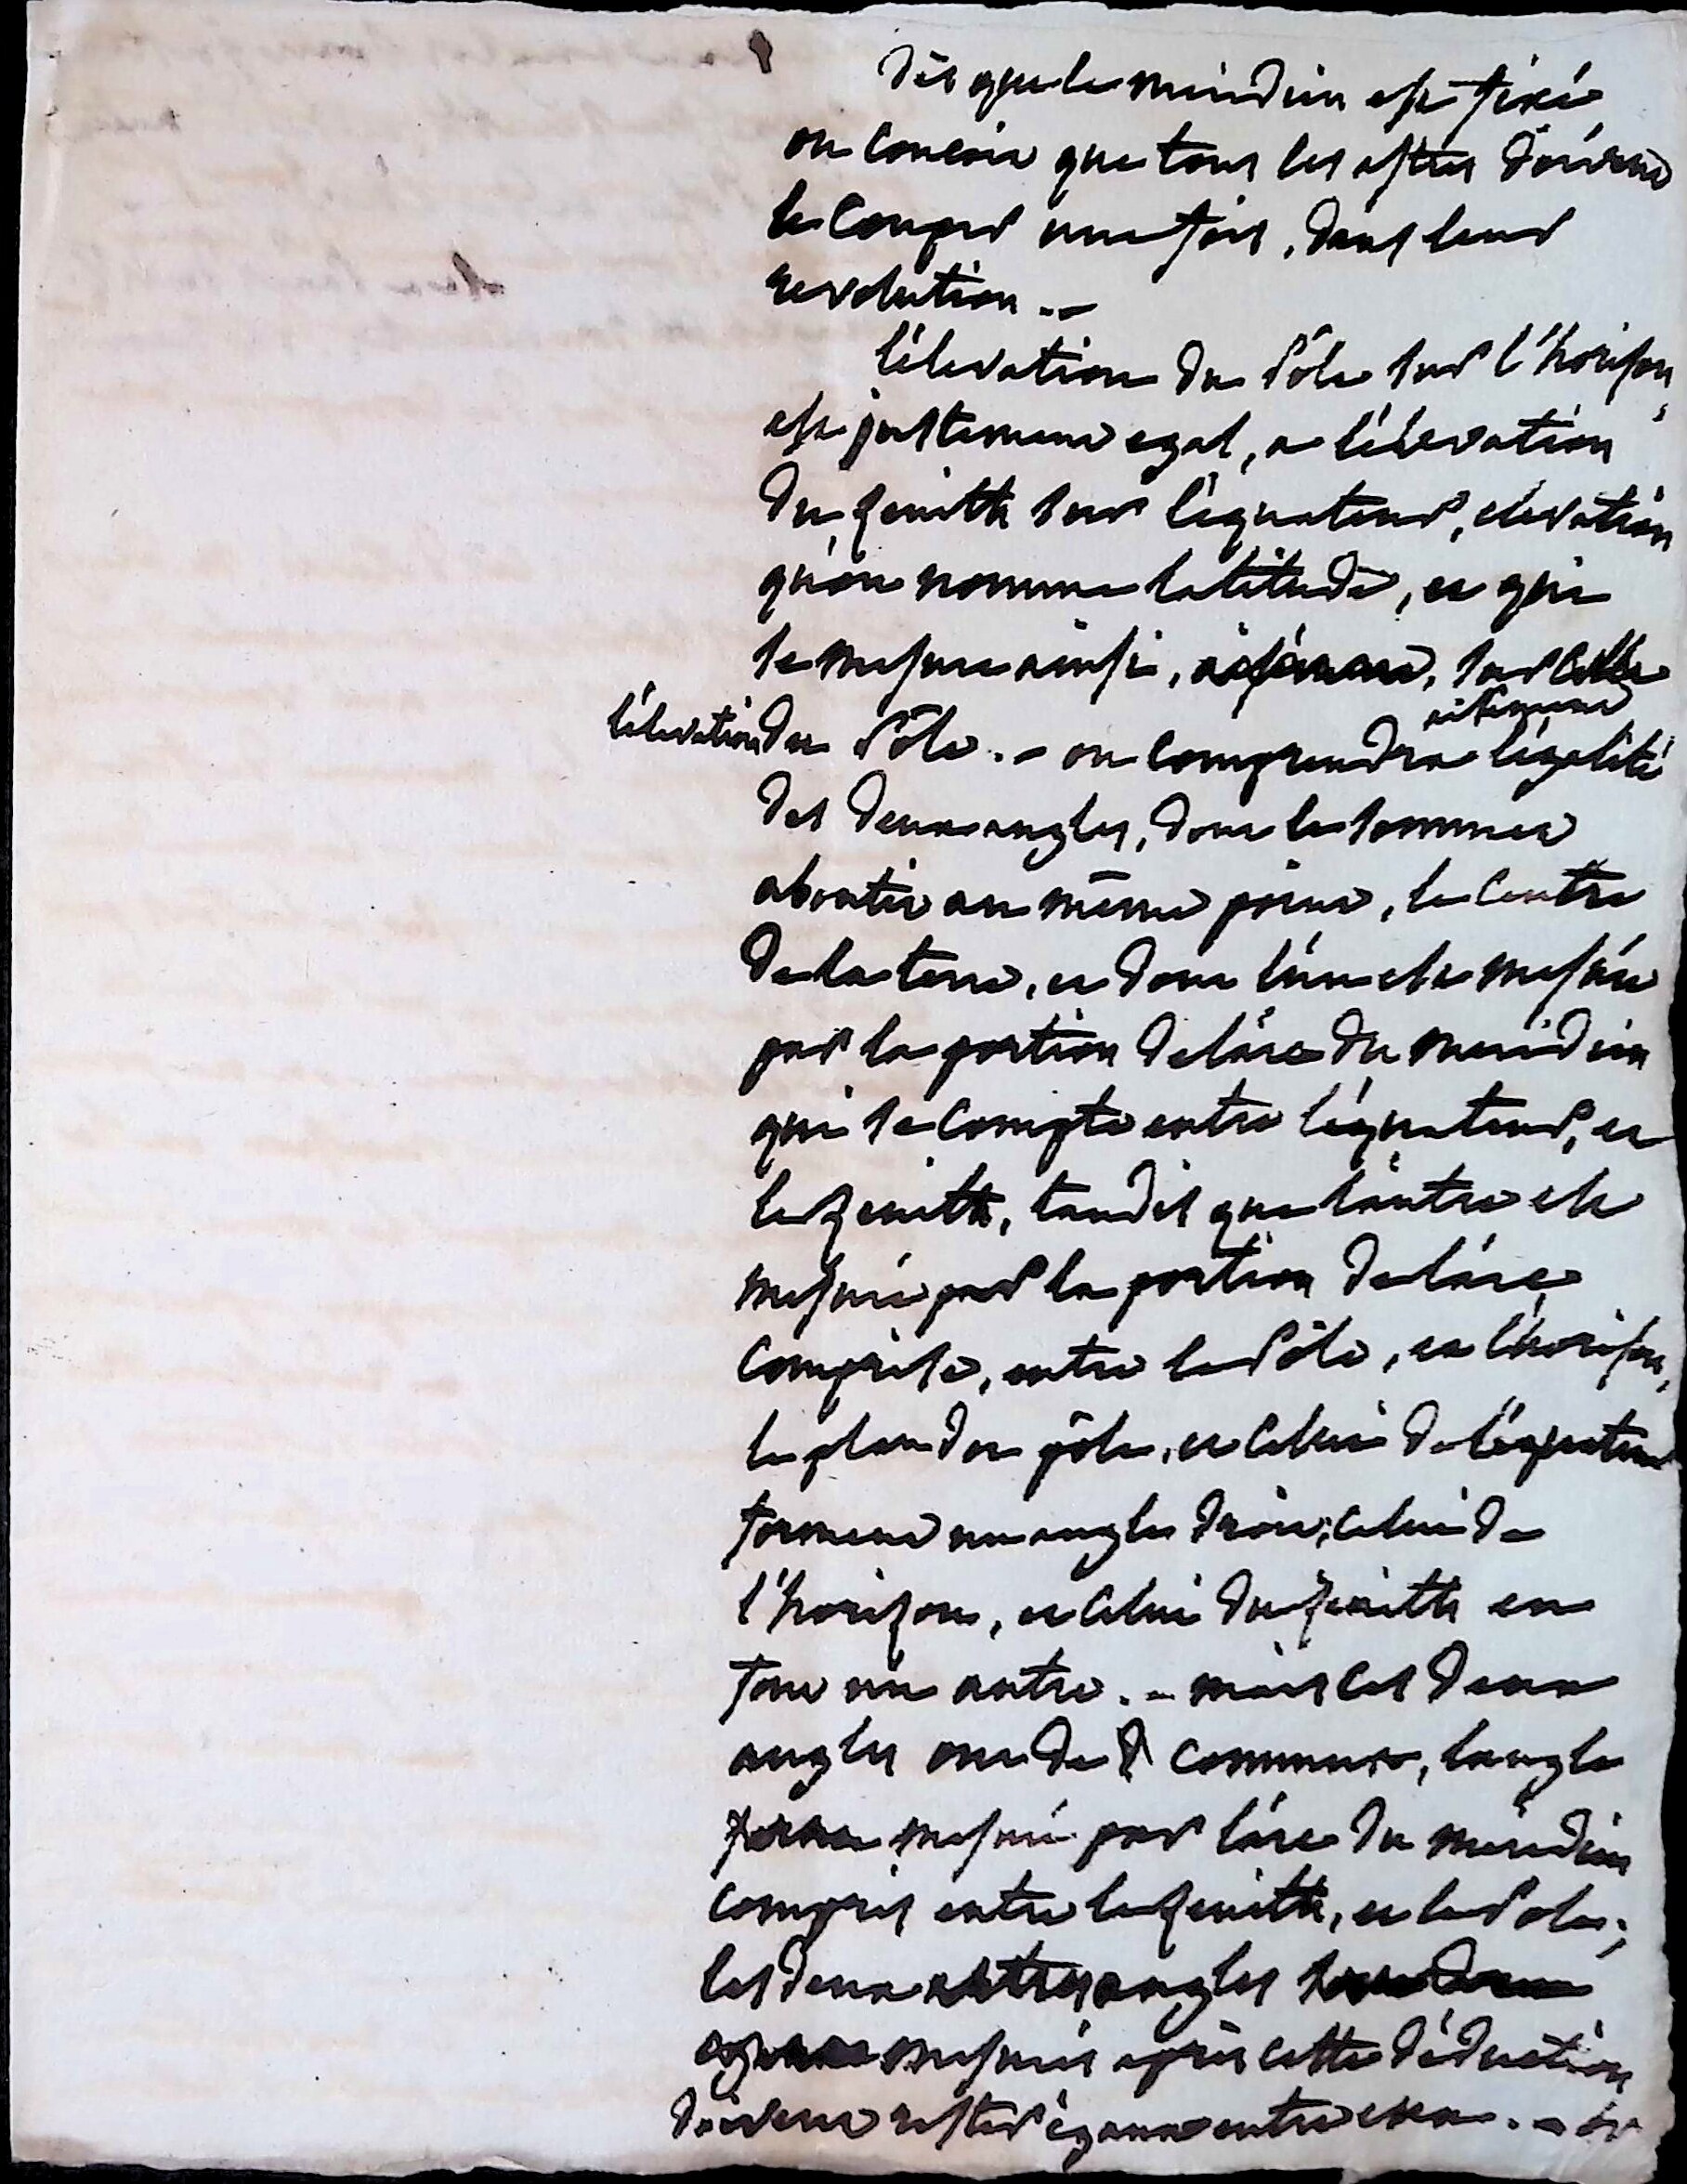 Dès que le meridien est fixé
on concoit que tous les astres doivent
le couper une fois, dans leur
revolution. -
l'élevation du Pôle sur l'horison,
est justement egal, a l'élevation
du zenith sur l'équateur, elevation
qu'on nomme latitude, et qui
se mesure ainsi, aisément, sur celle
aisément
l'élevation du Pôle. - on comprendra l'égalité
des deux angles, dont le sommet
aboutit au même point, le centre
de la terre, et dont l'un est mesuré
par la portion de l'arc du meridien
qui se compte entre l'équateur, et
le zenith, tandis que l'autre est
mesuré par la portion de l'arc
comprise, entre le Pôle, et l'horison,
le plan du pôle, et celui de l'équateur
forment un angle droit; celui de
l'horizon, et celui du zenith en
font un autre. - mais ces deux
angles ont de commun, l'angle
mesuré par l'arc du meridien
compris entre le zenith, et le Pole;
les deux autres angles
mesurés après cette déduction
doivent rester égaux entre eux. - or